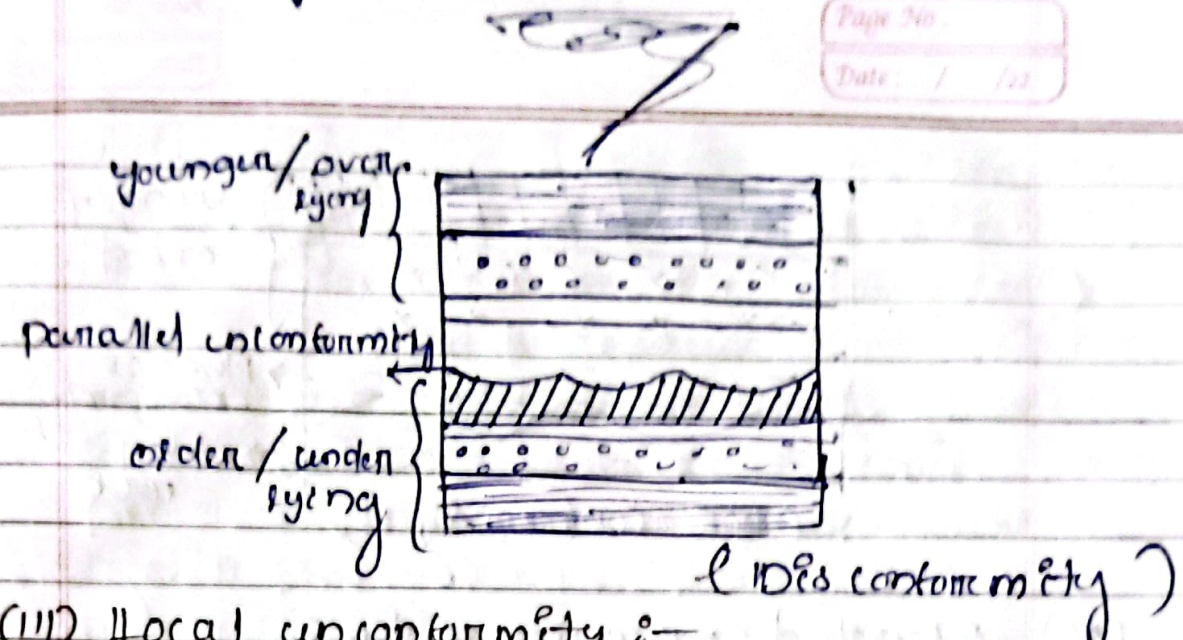 Page No.
Date: / /22
younger/over
lying
parallel unconformity
older/under
lying
(Disconformity)
(III) Local unconformity :-